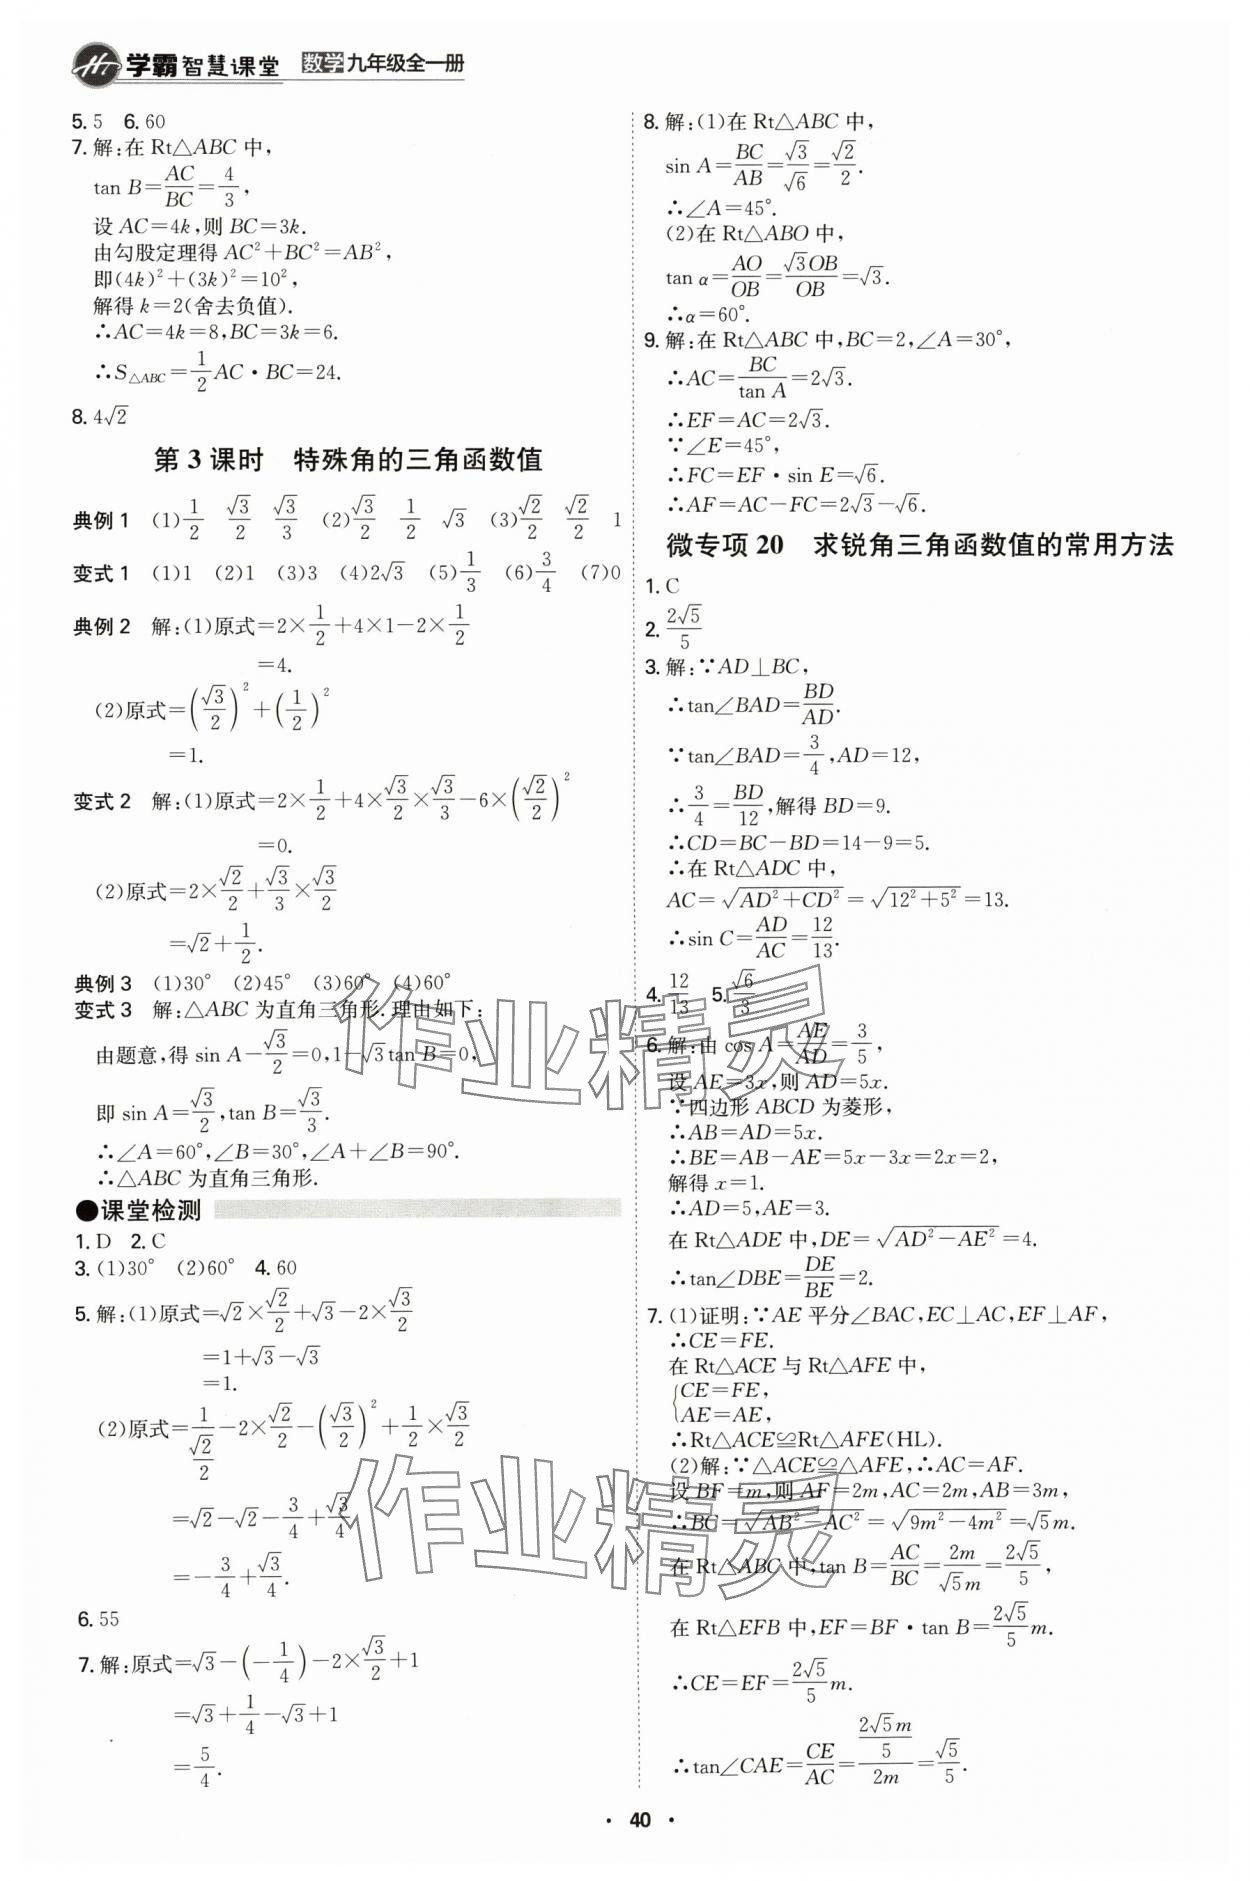 学霸智慧课堂 数学九年级全一册
5. 5 6. 60
7. 解:在 Rt△ABC 中,
tan B=AC/BC=4/3,
设 AC=4k,则 BC=3k.
由勾股定理得 AC²+BC²=AB²,
即(4k)²+(3k)²=10²,
解得 k=2(舍去负值).
∴AC=4k=8,BC=3k=6.
∴S△ABC=1/2AC·BC=24.
8. 4√2
第 3 课时 特殊角的三角函数值
典例 1 (1)1/2 √3/2 √3/3 (2)√3/2 1/2 √3 (3)√2/2 √2/2 1
变式 1 (1)1 (2)1 (3)3 (4)2√3 (5)1/3 (6)3/4 (7)0
典例 2 解:(1)原式=2×1/2+4×1-2×1/2
=4.
(2)原式=(√3/2)²+(1/2)²
=1.
变式 2 解:(1)原式=2×1/2+4×√3/2×√3/3-6×(√2/2)²
=0.
(2)原式=2×√2/2+√3/3×√3/2
=√2+1/2.
典例 3 (1)30° (2)45° (3)60° (4)60°
变式 3 解:△ABC 为直角三角形.理由如下:
由题意,得 sin A-√3/2=0,1-√3tan B=0,
即 sin A=√3/2,tan B=√3/3.
∴∠A=60°,∠B=30°,∠A+∠B=90°.
∴△ABC 为直角三角形.
●课堂检测
1. D 2. C
3. (1)30° (2)60° 4. 60
5. 解:(1)原式=√2×√2/2+√3-2×√3/2
=1+√3-√3
=1.
(2)原式=1/(√2/2)-2×√2/2-(√3/2)²+1/2×√3/2
=√2-√2-3/4+√3/4
=-3/4+√3/4.
6. 55
7. 解:原式=√3-(-1/4)-2×√3/2+1
=√3+1/4-√3+1
=5/4.
8. 解:(1)在 Rt△ABC 中,
sin A=BC/AB=√3/√6=√2/2.
∴∠A=45°.
(2)在 Rt△ABO 中,
tan α=AO/OB=√3OB/OB=√3.
∴α=60°.
9. 解:在 Rt△ABC 中,BC=2,∠A=30°,
∴AC=BC/tan A=2√3.
∴EF=AC=2√3.
∵∠E=45°,
∴FC=EF·sin E=√6.
∴AF=AC-FC=2√3-√6.
微专项 20 求锐角三角函数值的常用方法
1. C
2. 2√5/5
3. 解:∵AD⊥BC,
∴tan∠BAD=BD/AD.
∵tan∠BAD=3/4,AD=12,
∴3/4=BD/12,解得 BD=9.
∴CD=BC-BD=14-9=5.
∴在 Rt△ADC 中,
AC=√(AD²+CD²)=√(12²+5²)=13.
∴sin C=AD/AC=12/13.
4. 12/13 5. √6/3
6. 解:由 cos A=AE/AD=3/5,
设 AE=3x,则 AD=5x.
∵四边形 ABCD 为菱形,
∴AB=AD=5x.
∴BE=AB-AE=5x-3x=2x=2,
解得 x=1.
∴AD=5,AE=3.
在 Rt△ADE 中,DE=√(AD²-AE²)=4.
∴tan∠DBE=DE/BE=2.
7. (1)证明:∵AE 平分∠BAC,EC⊥AC,EF⊥AF,
∴CE=FE.
在 Rt△ACE 与 Rt△AFE 中,
{CE=FE,
AE=AE,
∴Rt△ACE≌Rt△AFE(HL).
(2)解:∵△ACE≌△AFE,∴AC=AF.
设 BF=m,则 AF=2m,AC=2m,AB=3m,
∴BC=√(AB²-AC²)=√(9m²-4m²)=√5m.
在 Rt△ABC 中,tan B=AC/BC=2m/√5m=2√5/5,
在 Rt△EFB 中,EF=BF·tan B=2√5/5m.
∴CE=EF=2√5/5m.
∴tan∠CAE=CE/AC=(2√5m/5)/2m=√5/5.
作业精灵
作业精灵
· 40 ·